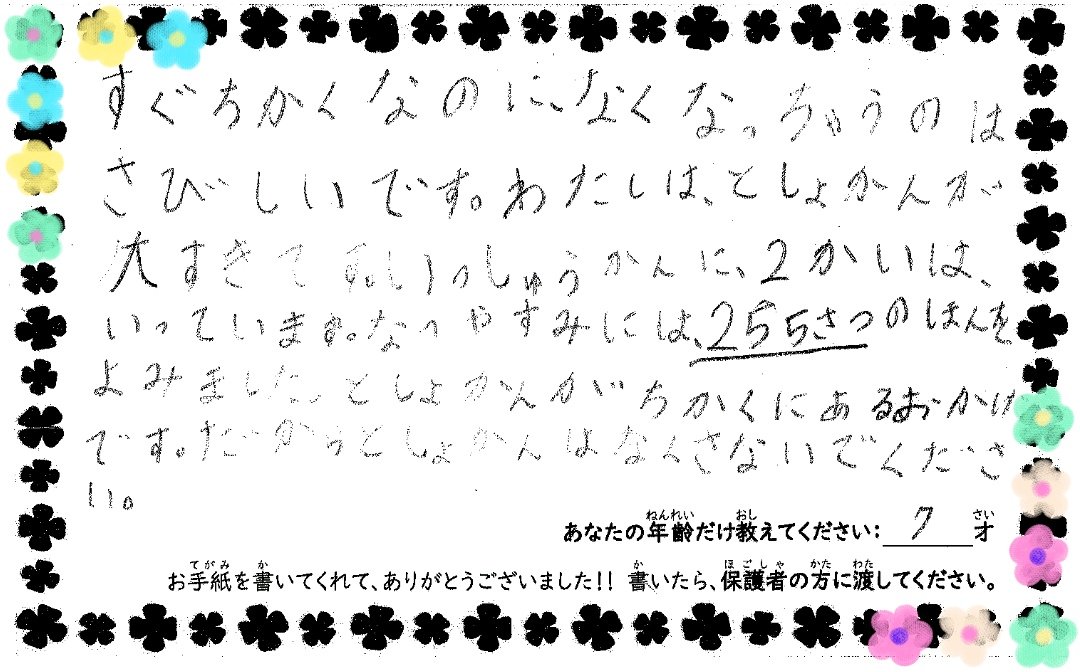 すぐちかくなのに、なくなっちゃうのは
さびしいです。わたしは、としょかんが
大すきです。いっしゅうかんに、2かいは、
いっています。なつやすみには、255さつのほんを
よみました。としょかんがちかくにあるおかげ
です。だからとしょかんはなくさないでくださ
い。
あなたの年齢だけ教えてください: 7才
ねんれい おし さい
お手紙を書いてくれて、ありがとうございました!! 書いたら、保護者の方に渡してください。
てがみ か か ほごしゃ かた わた